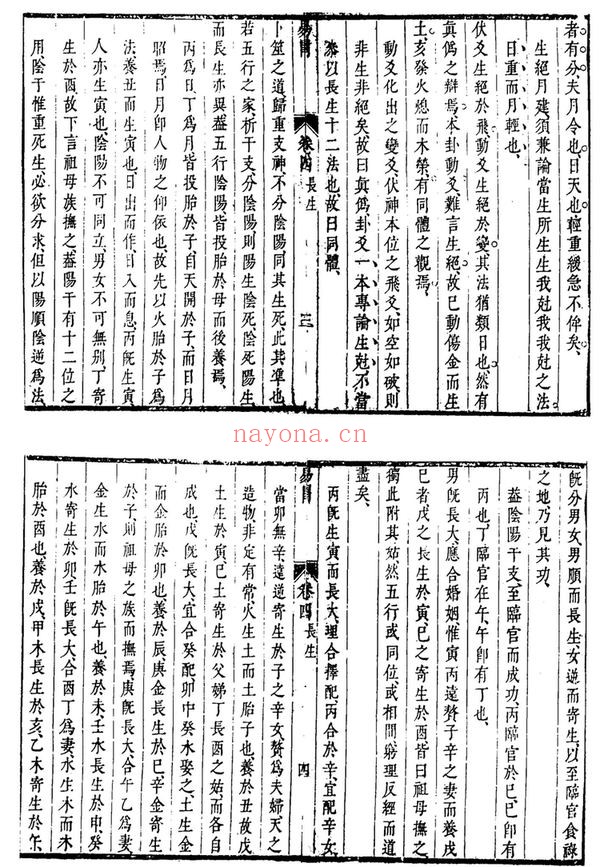 者有分、夫月令也、日天也、輕重緩急不侔矣、
生絕月建、須兼論當生所生、生我我尅之法、
日重而月輕也、
伏爻生絕於飛、動爻生絕於變、其法猶類日也、然有
眞僞之辯焉、本卦動爻、難言生絕、故巳動傷金而生
土、亥發火熄而木榮、有同體之觀焉、
動爻化出之變爻、伏神本位之飛爻、如空如破、則
非生非絕矣、故曰眞僞、卦爻一本專論生尅、不當
泰以長生十二法也、故曰同體、
易冒
卷四 長生
三
卜筮之道、歸重支神、不分陰陽、同其生死、此其凖也、
若五行之家、析干支、分陰陽、則陽生陰死、陰死陽生、
而長生亦異、蓋五行陰陽、皆投胎於母而後養焉、
丙爲日、丁爲月、皆投胎於子、自天開於子、而日月
昭焉、日月卽人物之仰依也、故先以火胎於子爲
法、養丑而生寅也、日出而作、日入而息、丙旣生寅、
人亦生寅也、陰陽不可同立、男女不可無別、丁寄
生於酉、故下言祖母族撫之、蓋陽干有十二位之
用、陰干惟重死生、必欲分求、但以陽順陰逆爲法、
旣分男女、男順而長生、女逆而寄生、以至臨官食祿
之地、乃見其功、
蓋陰陽干支、至臨官而成功、丙臨官於巳、巳卽有
丙也、丁臨官在午、午卽有丁也、
男旣長大、應合婚姻、惟寅丙遠贅子辛之妻、而養戌
巳者、戊之長生於寅、巳之寄生於酉、皆曰祖母撫之、
獨此附其茹然、五行或同位、或相間、窮理反經而道
盡矣、
丙旣生寅而長大、理合擇配、丙合於辛、宜配辛女、
易冒
卷四 長生
四
當卯無辛、遠道寄生於子之辛女、贅爲夫婦、天之
造物、非定有常、火生土而土胎子也、養於丑、故戊
土生於寅、巳土寄生於父娣丁長酉之姑、而各自
成也、戊旣長大、宜合癸配、卯中癸水娶之、土生金
而金胎於卯也、養於辰、庚金長生於巳、辛金寄生
於子、則祖母之族而撫焉、庚旣長大、合午乙爲妻、
金生水而水胎於午也、養於未、壬水長生於申、癸
水寄生於卯、壬旣長大、合酉丁爲妻、水生木而木
胎於酉也、養於戌、甲木長生於亥、乙木寄生於午、
nayona.cn